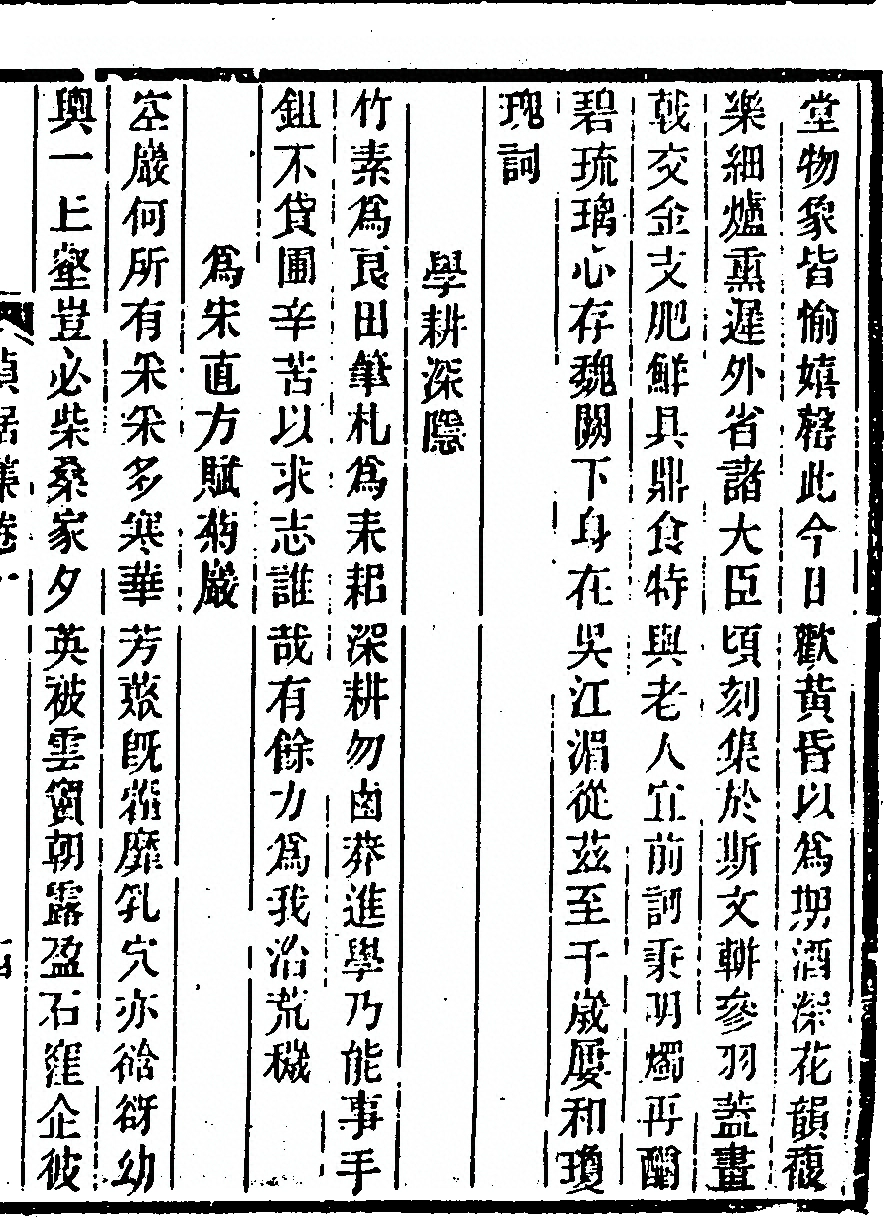 堂物象皆愉嬉罄此今日歡黃昏以爲期酒深花韻複
樂細爐熏遲外省諸大臣頃刻集於斯文輧參羽蓋畫
戟交金支肥鮮具鼎食特與老人宜前訶秉明燭再酬
碧琉璃心存魏闕下身在吳江湄從茲至千歲屢和瓊
瑰詞
學耕深隱
竹素爲良田筆札爲耒耜深耕勿鹵莽進學乃能事手
鉏不貸圃辛苦以求志誰哉有餘力爲我治荒穢
爲宋直方賦菊巖
空巖何所有采采多寒華芳蕤旣蘿靡乳穴亦谽谺幼
輿一丘壑豈必柴桑家夕英被雲竇朝露盈石窪企彼
貞居集卷